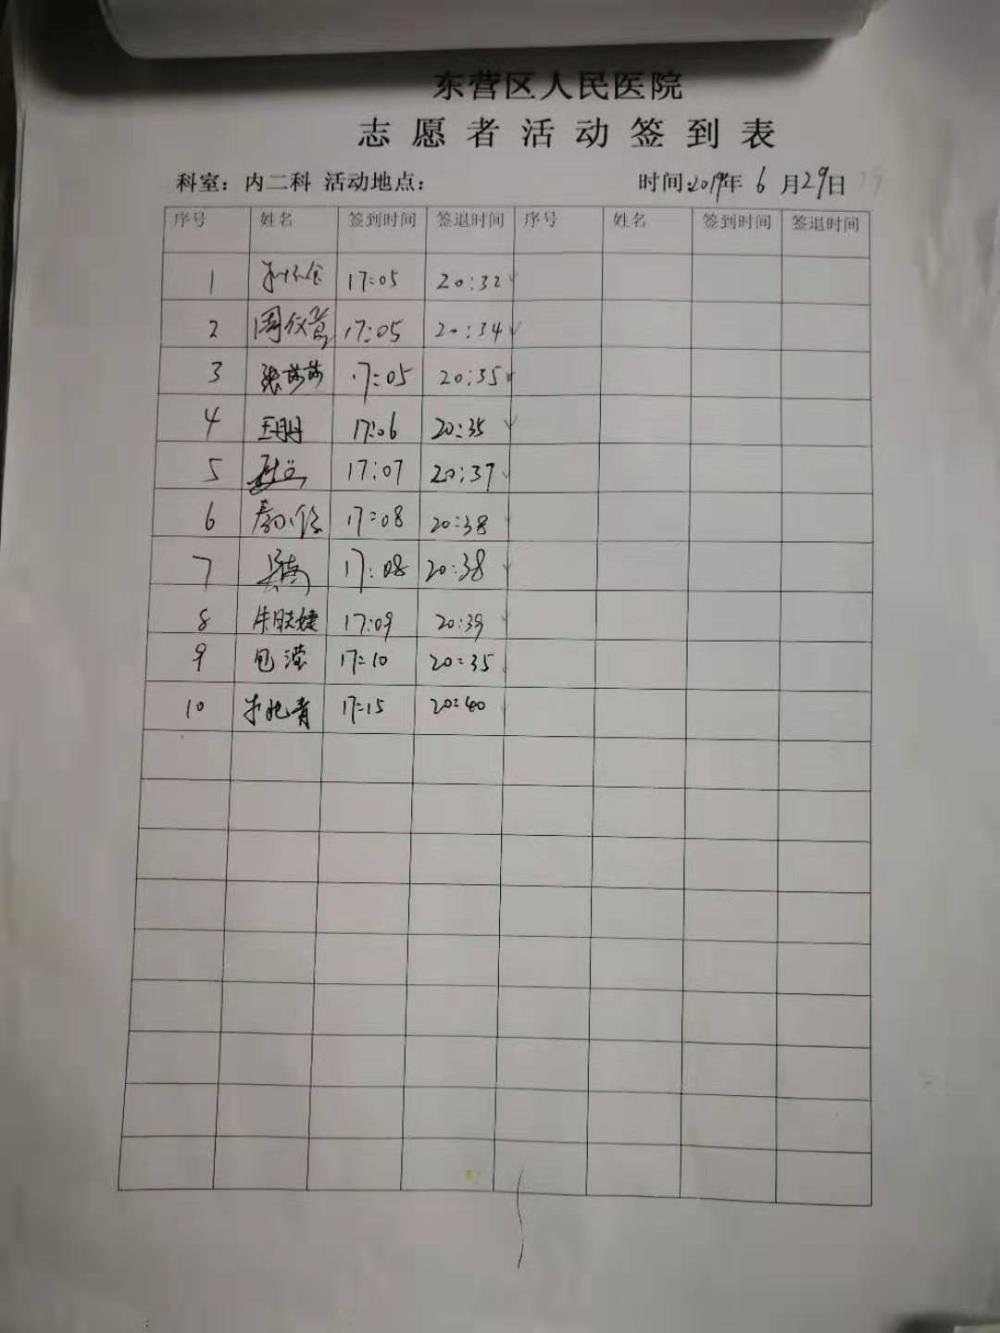 东营区人民医院
志愿者活动签到表
科室：内二科 活动地点： 时间：2019年6月29日
序号 姓名 签到时间 签退时间 序号 姓名 签到时间 签退时间
1 17:05 20:32
2 17:05 20:34
3 张莎莎 17:05 20:35
4 17:06 20:35
5 17:07 20:37
6 17:08 20:38
7 17:08 20:38
8 17:09 20:39
9 包滢 17:10 20:35
10 17:15 20:40